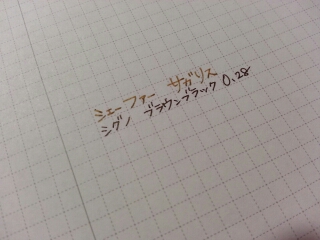 シェーファー サガリス
シグノ ブラウンブラック 0.28